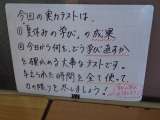 今回の実力テストは、
①「夏休みの学び」の成果
②今日から何を、どう学び直すか
を確かめる大事なテストです。
与えられた時間を全て使って
力の限りを尽しましょう!